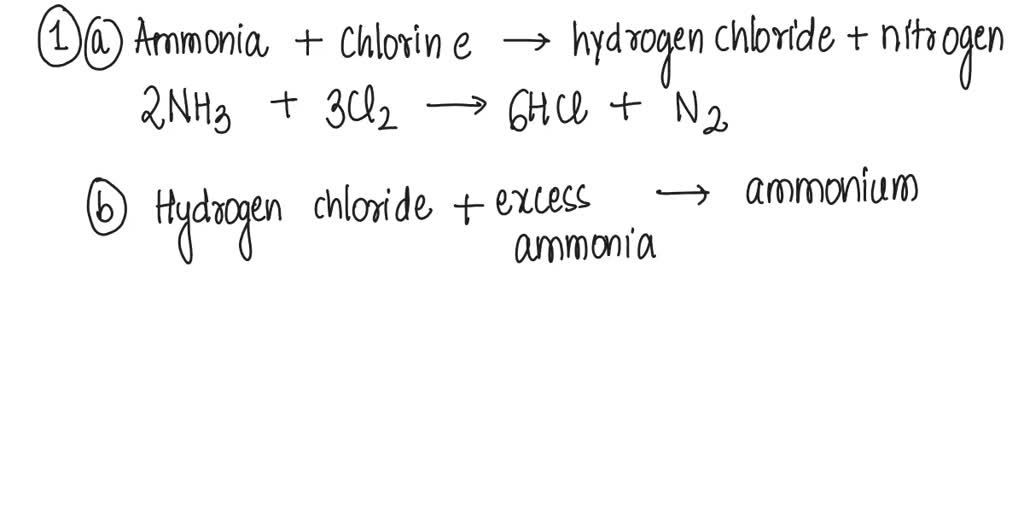 ① ⓐ Ammonia + Chlorine → hydrogen chloride + nitrogen
2NH₃ + 3Cl₂ → 6HCl + N₂
ⓑ Hydrogen chloride + excess → ammonium
ammonia